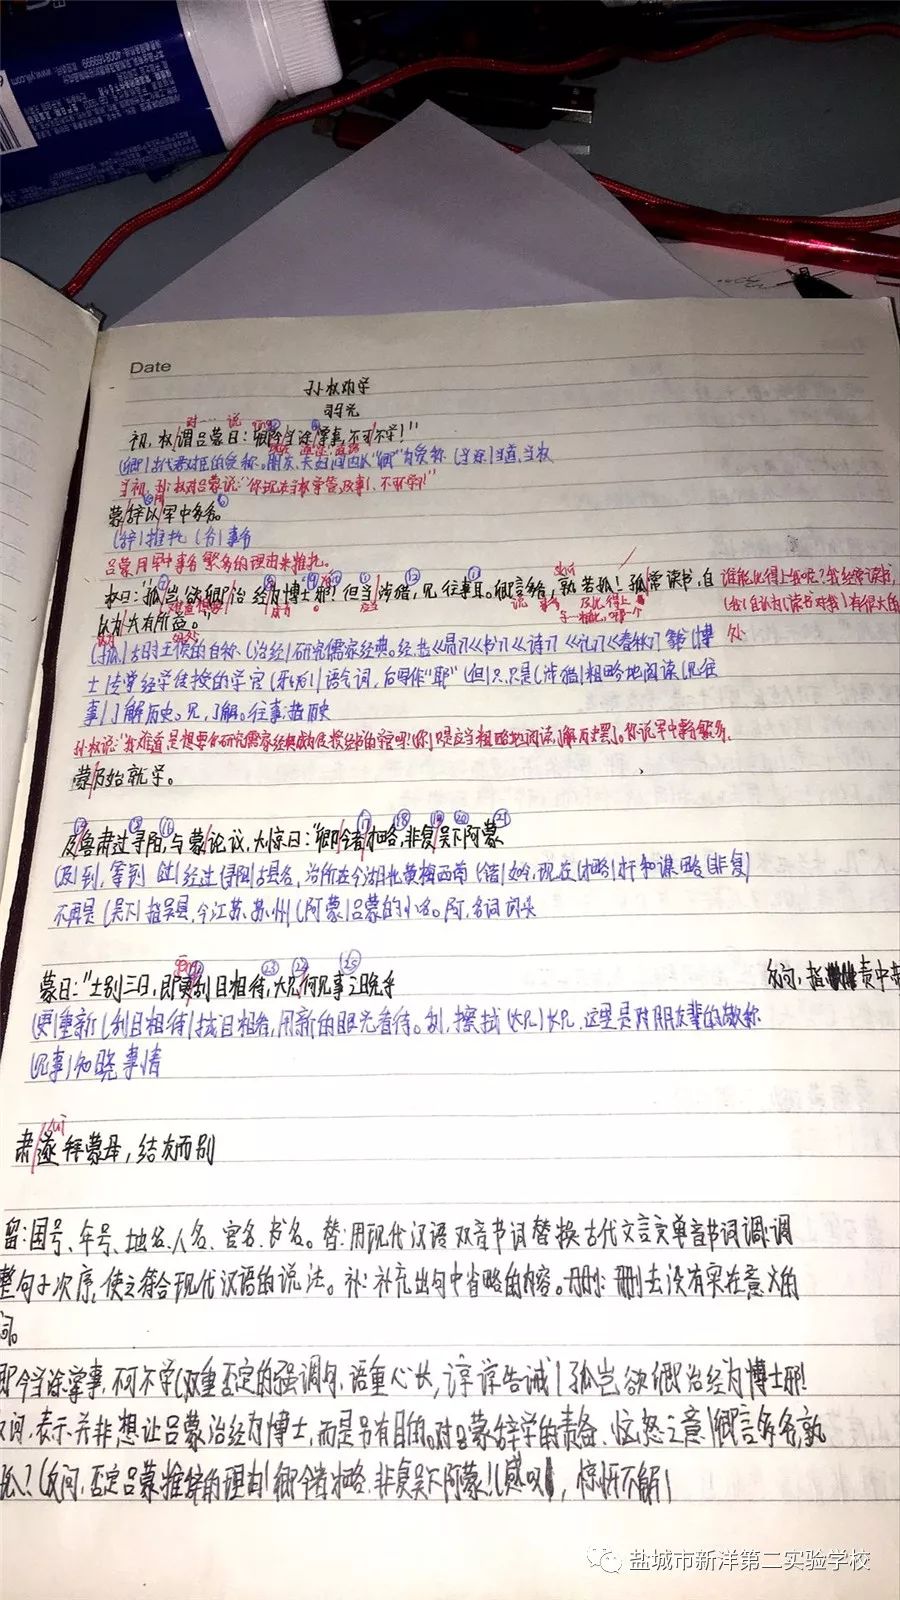 400-8169999
www.yili.com
Date
孙权劝学
司光
对…说
初,权谓吕蒙曰:“卿今当涂掌事,不可不学!”
(卿)古代君对臣的爱称。朋友、夫妇间也以“卿”为爱称 (当涂)当道,当权
当初,孙权对吕蒙说:“你现在当权掌管政事,不可不学!”
蒙辞以军中多务。
(辞)推托 (务)事务
吕蒙用军中事务繁多的理由来推托。
权曰:“孤岂欲卿治经为博士邪!但当涉猎,见往事耳。卿言多务,孰若孤!孤常读书,自
谁能比得上我呢?我经常读书,
以为大有所益。”
(我)自认为(读书对我)有很大的
处
(孤)古时王侯的自称。(治经)研究儒家经典。经,指《易》《书》《诗》《礼》《春秋》等(博
士)专掌经学传授的学官(邪)语气词,后写作“耶”(但)只,只是(涉猎)粗略地阅读(见往
事)了解历史。见,了解。往事,指历史
孙权说:“我难道是想要你研究儒家经典成为传授经书的学官吗!(你)只是应当粗略地阅读,了解历史罢了。你说军中事务繁多,
蒙乃始就学。
及鲁肃过寻阳,与蒙论议,大惊曰:“卿今者才略,非复吴下阿蒙
(及)到,等到 (过)经过(寻阳)古县名,治所在今湖北黄梅西南(今者)如今,现在(才略)才和谋略(非复)
不再是(吴下)指吴县,今江苏苏州(阿蒙)吕蒙的小名。阿,名词词头
蒙曰:“士别三日,即更刮目相待,大兄何见事之晚乎
反问,指责中带
(更)重新(刮目相待)拭目相看,用新的眼光看待。刮,擦拭(大兄)长兄,这里是对朋友辈的敬称
(见事)知晓事情
肃遂拜蒙母,结友而别
留:国号、年号、地名、人名、官名、书名。替:用现代汉语双音节词替换古代文言文单音节词调:调
整句子次序,使之符合现代汉语的说法。补:补充出句中省略的内容。删:删去没有实在意义的
词。
卿今当涂掌事,不可不学(双重否定的强调句,语重心长,谆谆告诫)孤岂欲卿治经为博士邪!
反问,表示并非想让吕蒙治经为博士,而是另有目的。对吕蒙辞学的责备、恼怒之意)卿言多务,孰
若孤?(反问,否定吕蒙推辞的理由)卿今者才略,非复吴下阿蒙!(感叹,惊讶不解)
盐城市新洋第二实验学校